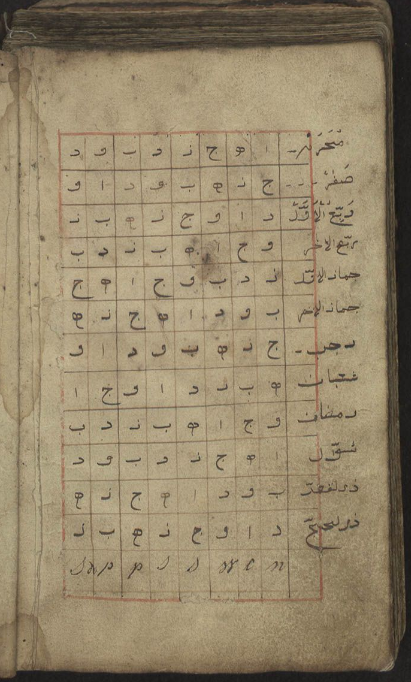 محرم ا ه ج ز د ب و د
صفر ج ز ه ب و د ا و
ربيع الاول د ا و ج ز ه ب ز
ربيع الاخر و ج ا ه ب ز د ب
جماذ الاول ز د ب و ج ا ه ج
جماذ الاخر ب و د ا ه ج ز ه
رجب ج ز ه ب و د ا و
شعبان ه ب ز د ا و ج ا
رمضان و ج ا ه ب ز د ب
شوال ا ه ج ز د ب و د
ذو القعده ب و د ا ه ج ز ه
ذو الحجه د ا و ج ز ه ب ز